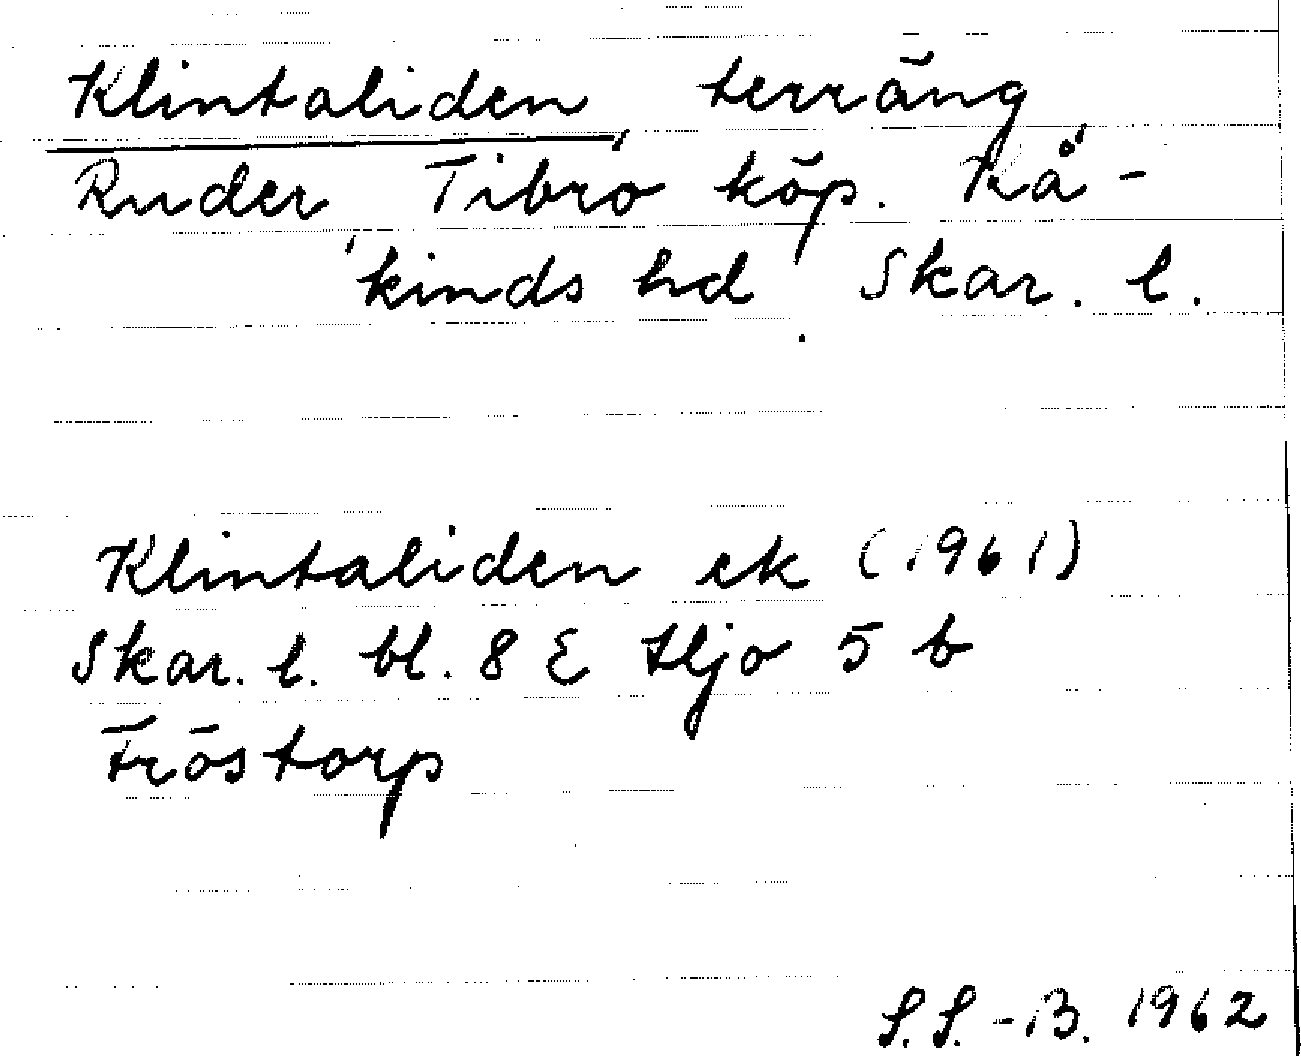 Klintaliden terräng
Ruder Tibro köp. Kå-
kinds hd Skar. l.
Klintaliden ek (1961)
Skar. l. bl. 8 E Hjo 5 b
Fröstorp
S.S.-B. 1962